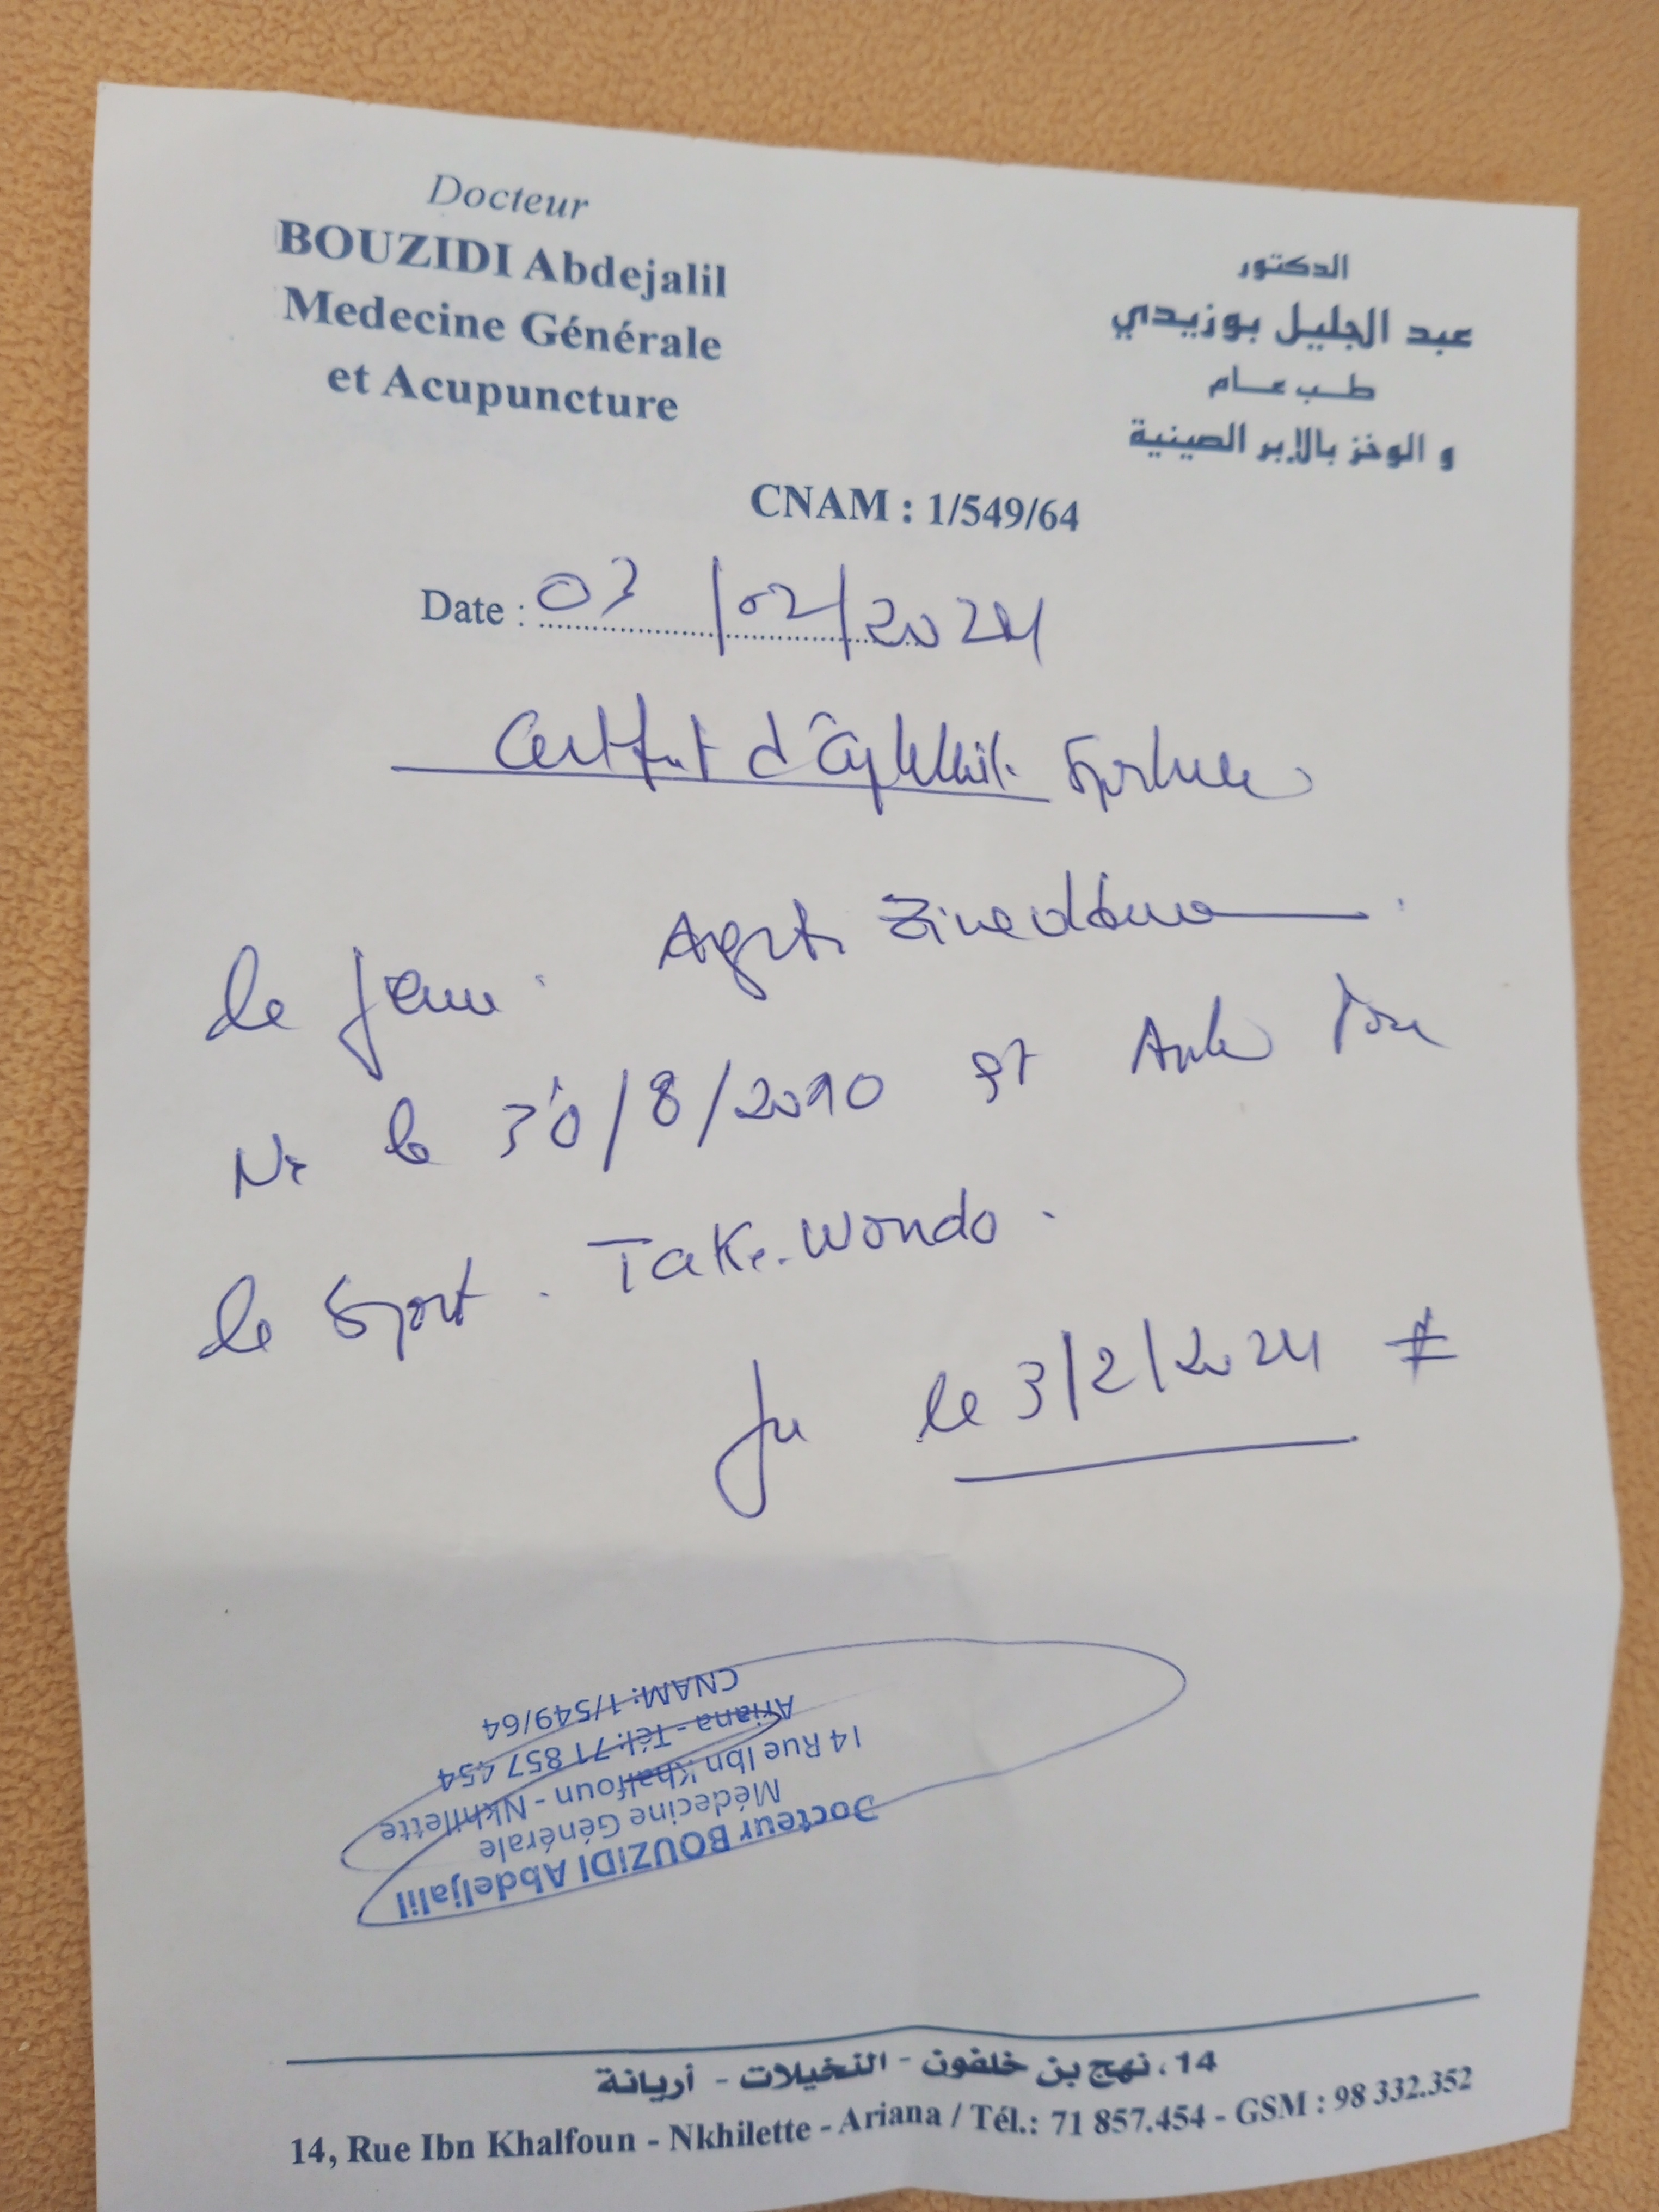 Docteur
BOUZIDI Abdejalil
Medecine Générale
et Acupuncture
الدكتور
عبد الجليل بوزيدي
طب عام
و الوخز بالإبر الصينية
CNAM : 1/549/64
Date : 03/02/2024
Certificat d'aptitude sportive
le jeune Zineddine
Né le 30/8/2010 est Apte pour
le sport. Take.wondo.
le 3/2/2024 #
Docteur BOUZIDI Abdeljalil
Médecine Générale
14 Rue Ibn Khalfoun - Nkhilette
Ariana - Tél: 71 857 454
CNAM: 1/549/64
14، نهج بن خلفون - النخيلات - أريانة
14, Rue Ibn Khalfoun - Nkhilette - Ariana / Tél.: 71 857.454 - GSM : 98 332.352